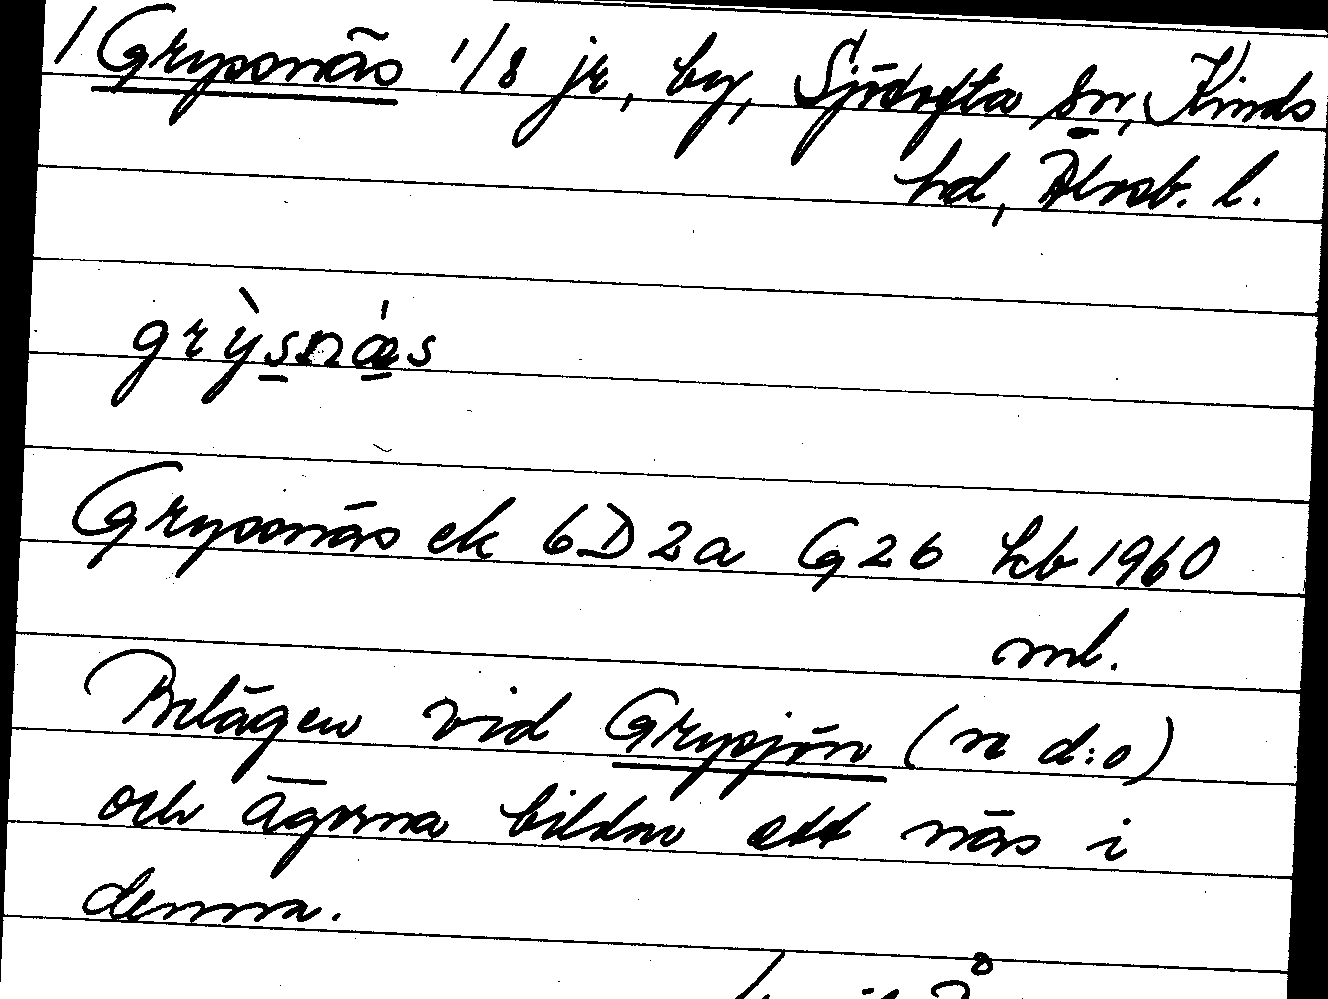 / Gryssnäs 1/8 jr, by, Sjötofta sn, Kinds
hd, Älvsb. l.
grỳsnæ̀s
Gryssnäs ek 6D2a G26 hcb 1960
ml.
Belägen vid Grysjön (n d:o)
och ägorna bildar ett näs i
denna.